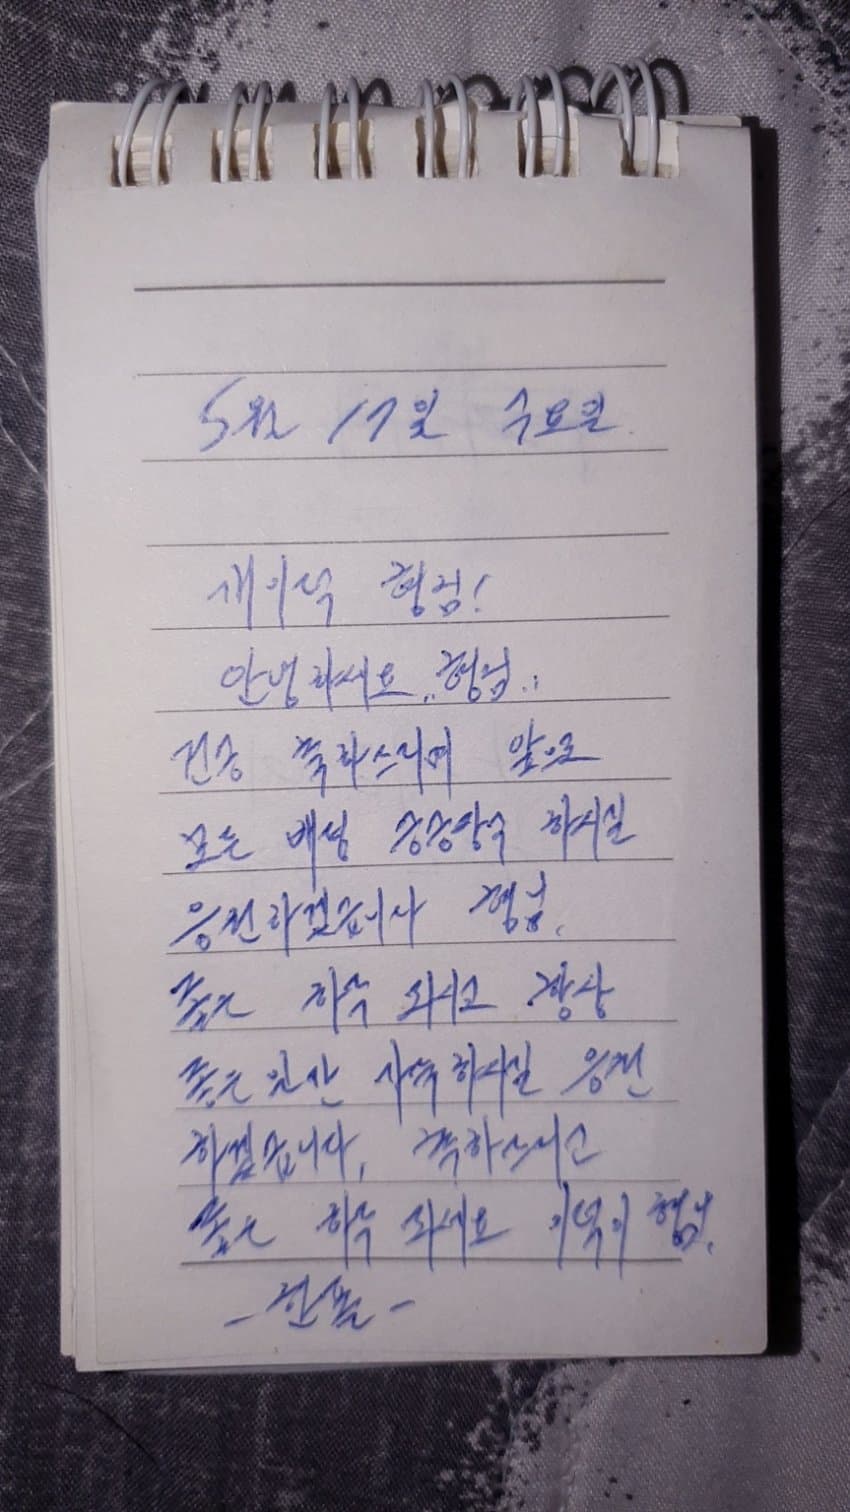 5월 17일 수요일
형님!
안녕하세요.. 형님..
건승 축하드리며 앞으로
모든 배성 승승장구 하시길
응원하겠습니다 형님.
좋은 하루 되시고 항상
좋은 인산 하시길 응원
하겠습니다. 축하드리고
좋은 하루 되세요 이덕이 형님.